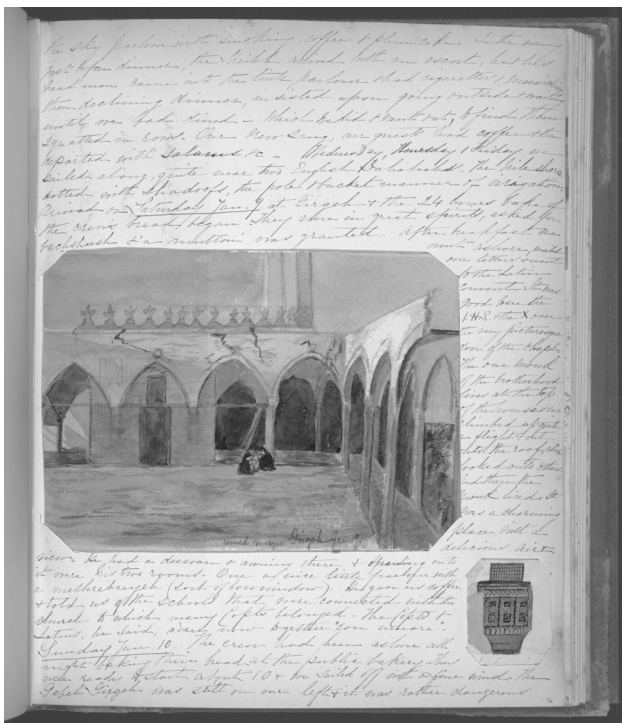 the ski parlour with smoking, coffee & plum cake. In the evening
just before dinner, the Sheikh arrived with an escort, and his
head man came into the little parlour & had cigarettes &
then declining dinner, insisted upon going outside & waiting
until we had dined – which he did & went out, to find them
squatted in rows. One New rug, our guests had coffee & then
departed with Salaams &c – Wednesday, Thursday & Friday we
sailed along, quite near two English Dahabeahs. The Nile shore
dotted with Shadoofs, the pole & bucket manner of irrigation.
Arrived on Saturday Jan. 9 at Girgeh & the 24 hours bake of
the crew's bread began. They were in great spirits, asked for
backsheesh & a mutton was granted. After breakfast we
went ashore,
our letters
to the Latin
convent. It was
good to see the
I.H.S. & the X over
the very picturesque
door of the chapel.
The one monk
of the brotherhood
lives at the top
of the house & we
climbed up quite
a flight & out
onto the roof &
looked onto others
and there the
monk lived. It
was a charming
place with a
delicious
ruined mosque Girgeh Jan. 9.
view. He had a deewan & awning there & opening onto
it were his two rooms. One a nice little parlour with
a meshrebeeyeh (sort of bow window). He gave us coffee
& told us of the schools that were connected with the
church to which many Copts belonged. The Copts &
Latins, he said, were now together "con amore".
Sunday Jan. 10. The crew had been ashore all
night baking their bread at the public bakery. They
were ready to start about 10 & we sailed off with a fine wind. The
Gebel Girgeh was still on our left & it was rather dangerous
16